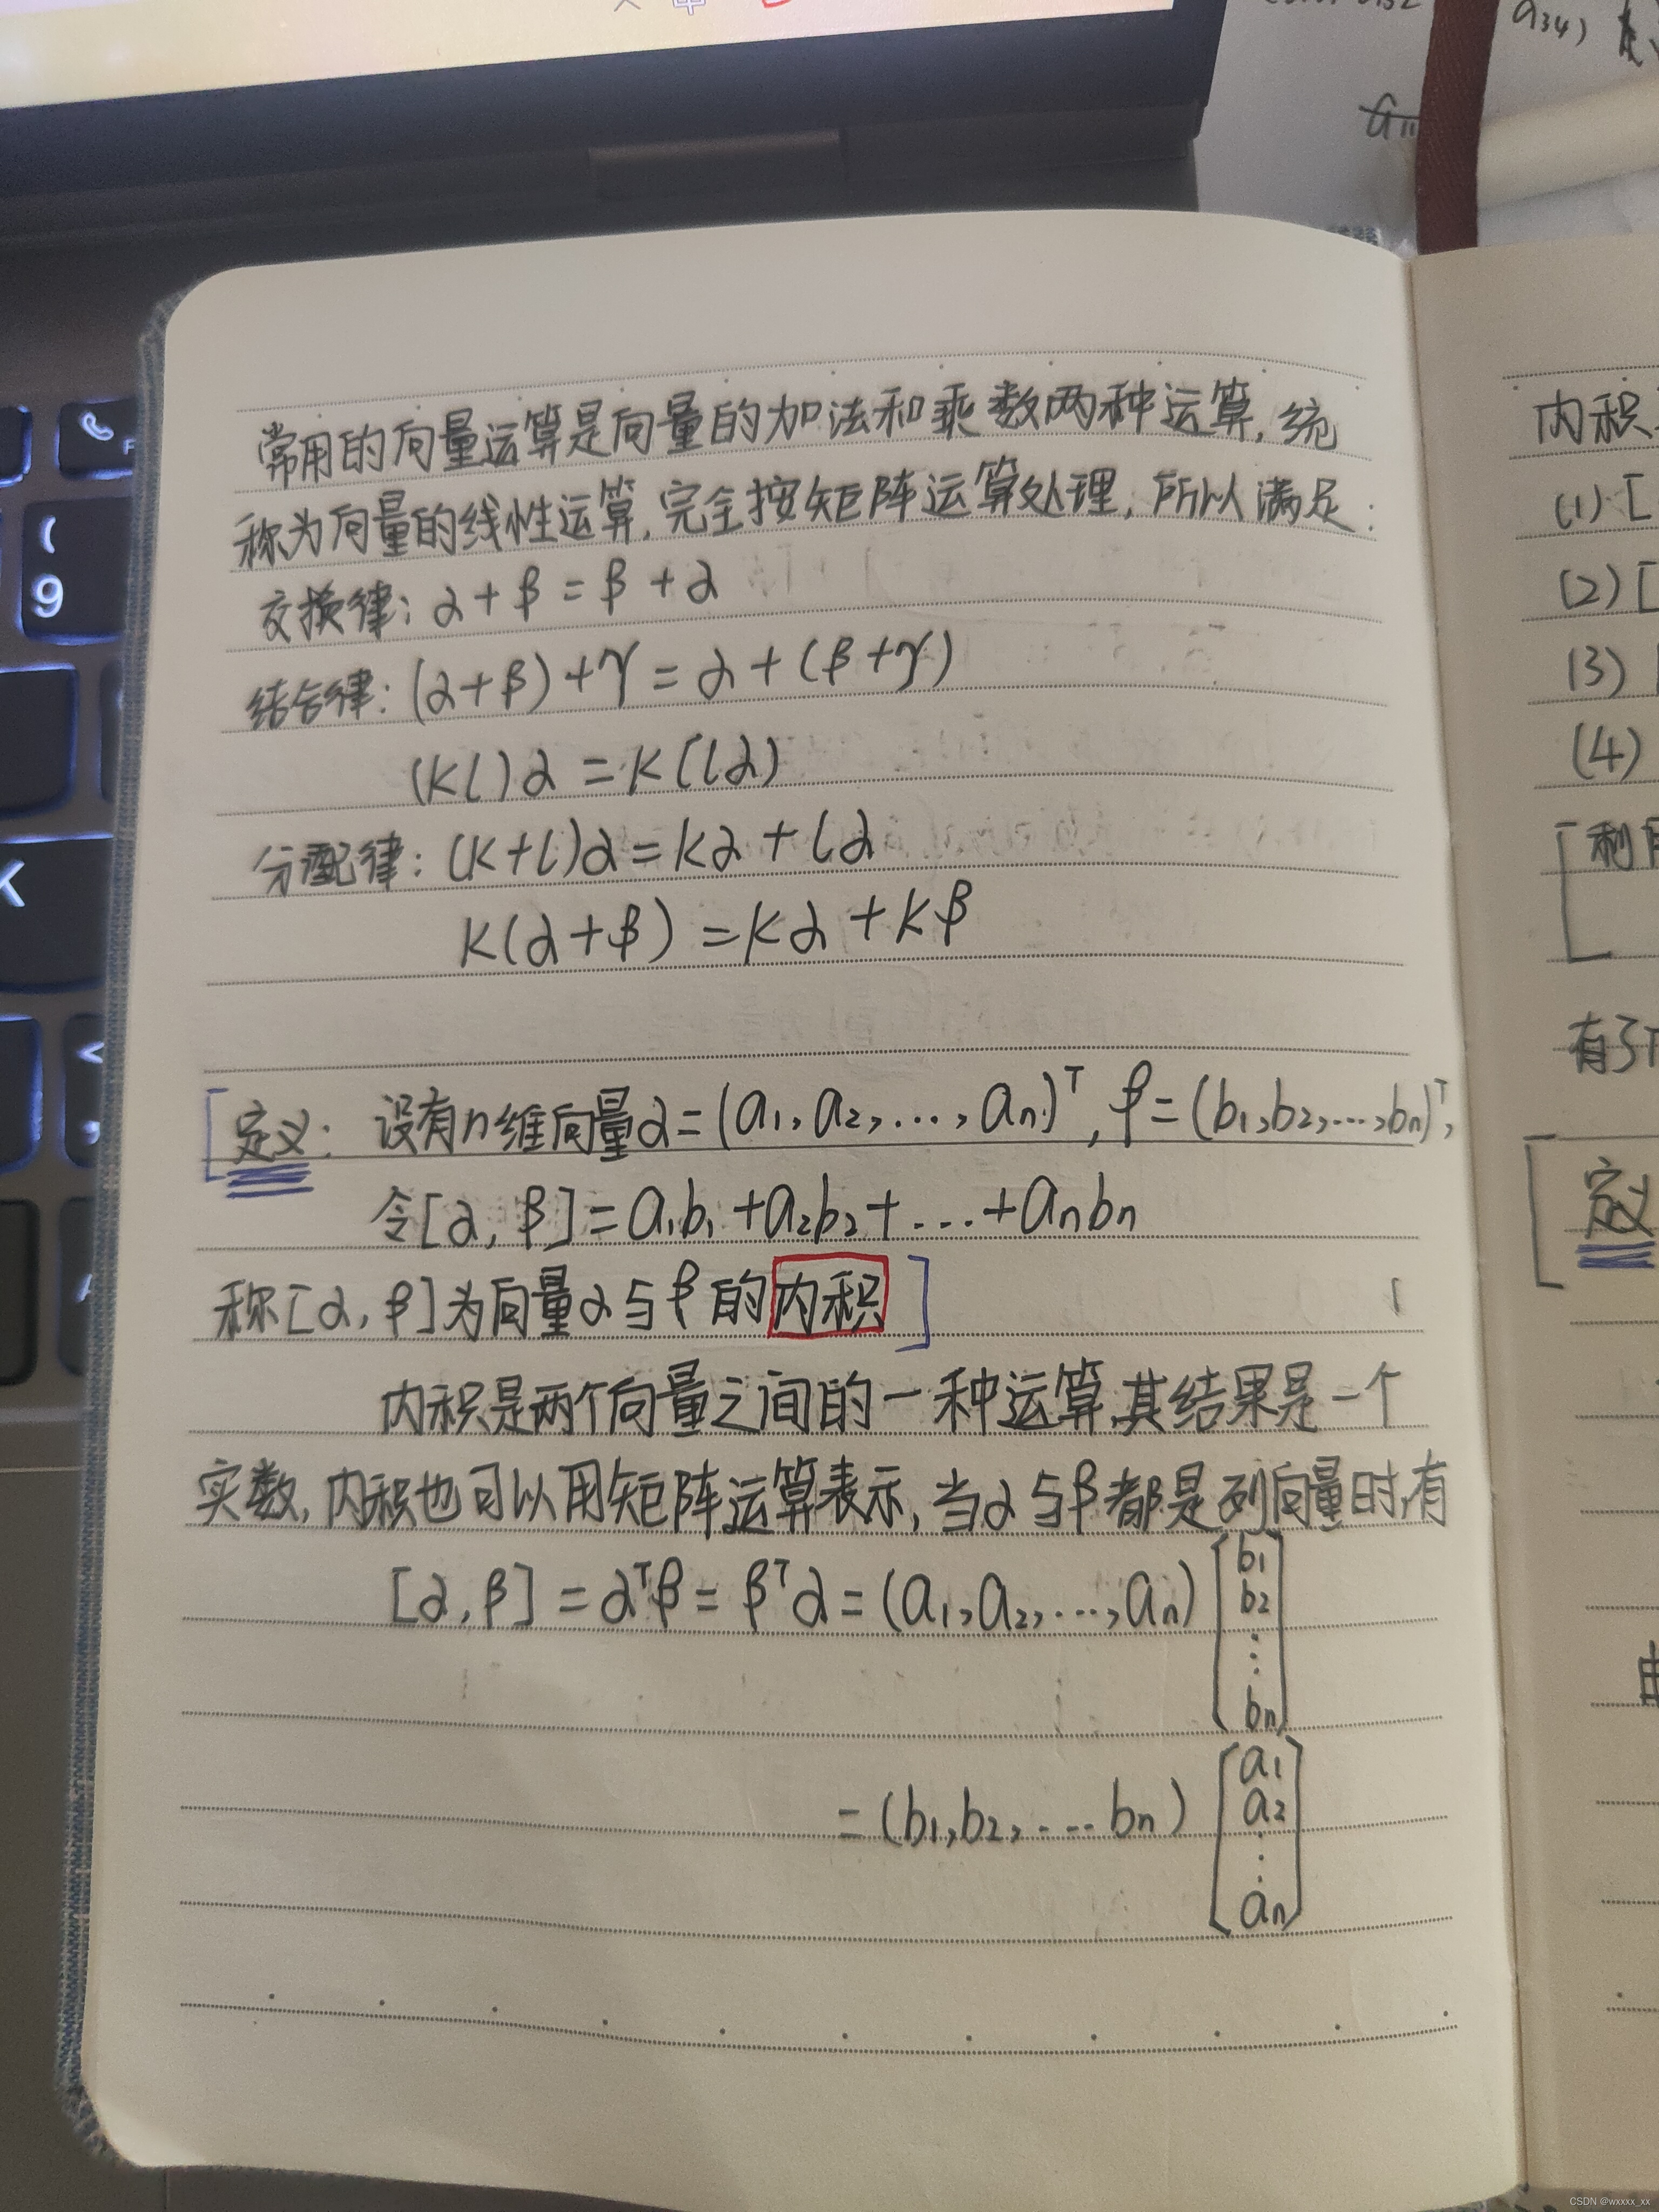 a34)
a11
常用的向量运算是向量的加法和乘数两种运算,统
称为向量的线性运算,完全按矩阵运算处理,所以满足:
交换律: α+β=β+α
结合律: (α+β)+γ=α+(β+γ)
(kl)α=k(lα)
分配律: (k+l)α=kα+lα
k(α+β)=kα+kβ
[定义: 设有n维向量α=(a₁,a₂,…,aₙ)ᵀ,β=(b₁,b₂,…,bₙ)ᵀ,
令[α,β]=a₁b₁+a₂b₂+…+aₙbₙ
称[α,β]为向量α与β的内积]
内积是两个向量之间的一种运算,其结果是一个
实数,内积也可以用矩阵运算表示,当α与β都是列向量时,有
[α,β]=αᵀβ=βᵀα=(a₁,a₂,…,aₙ)[b₁ b₂ ⋮ bₙ]
=(b₁,b₂,…bₙ)[a₁ a₂ ⋮ aₙ]
内积
(1)[
(2)[
(3)
(4)
[利
有了
[定义
(
9
K
<
CSDN @wxxxx_xx